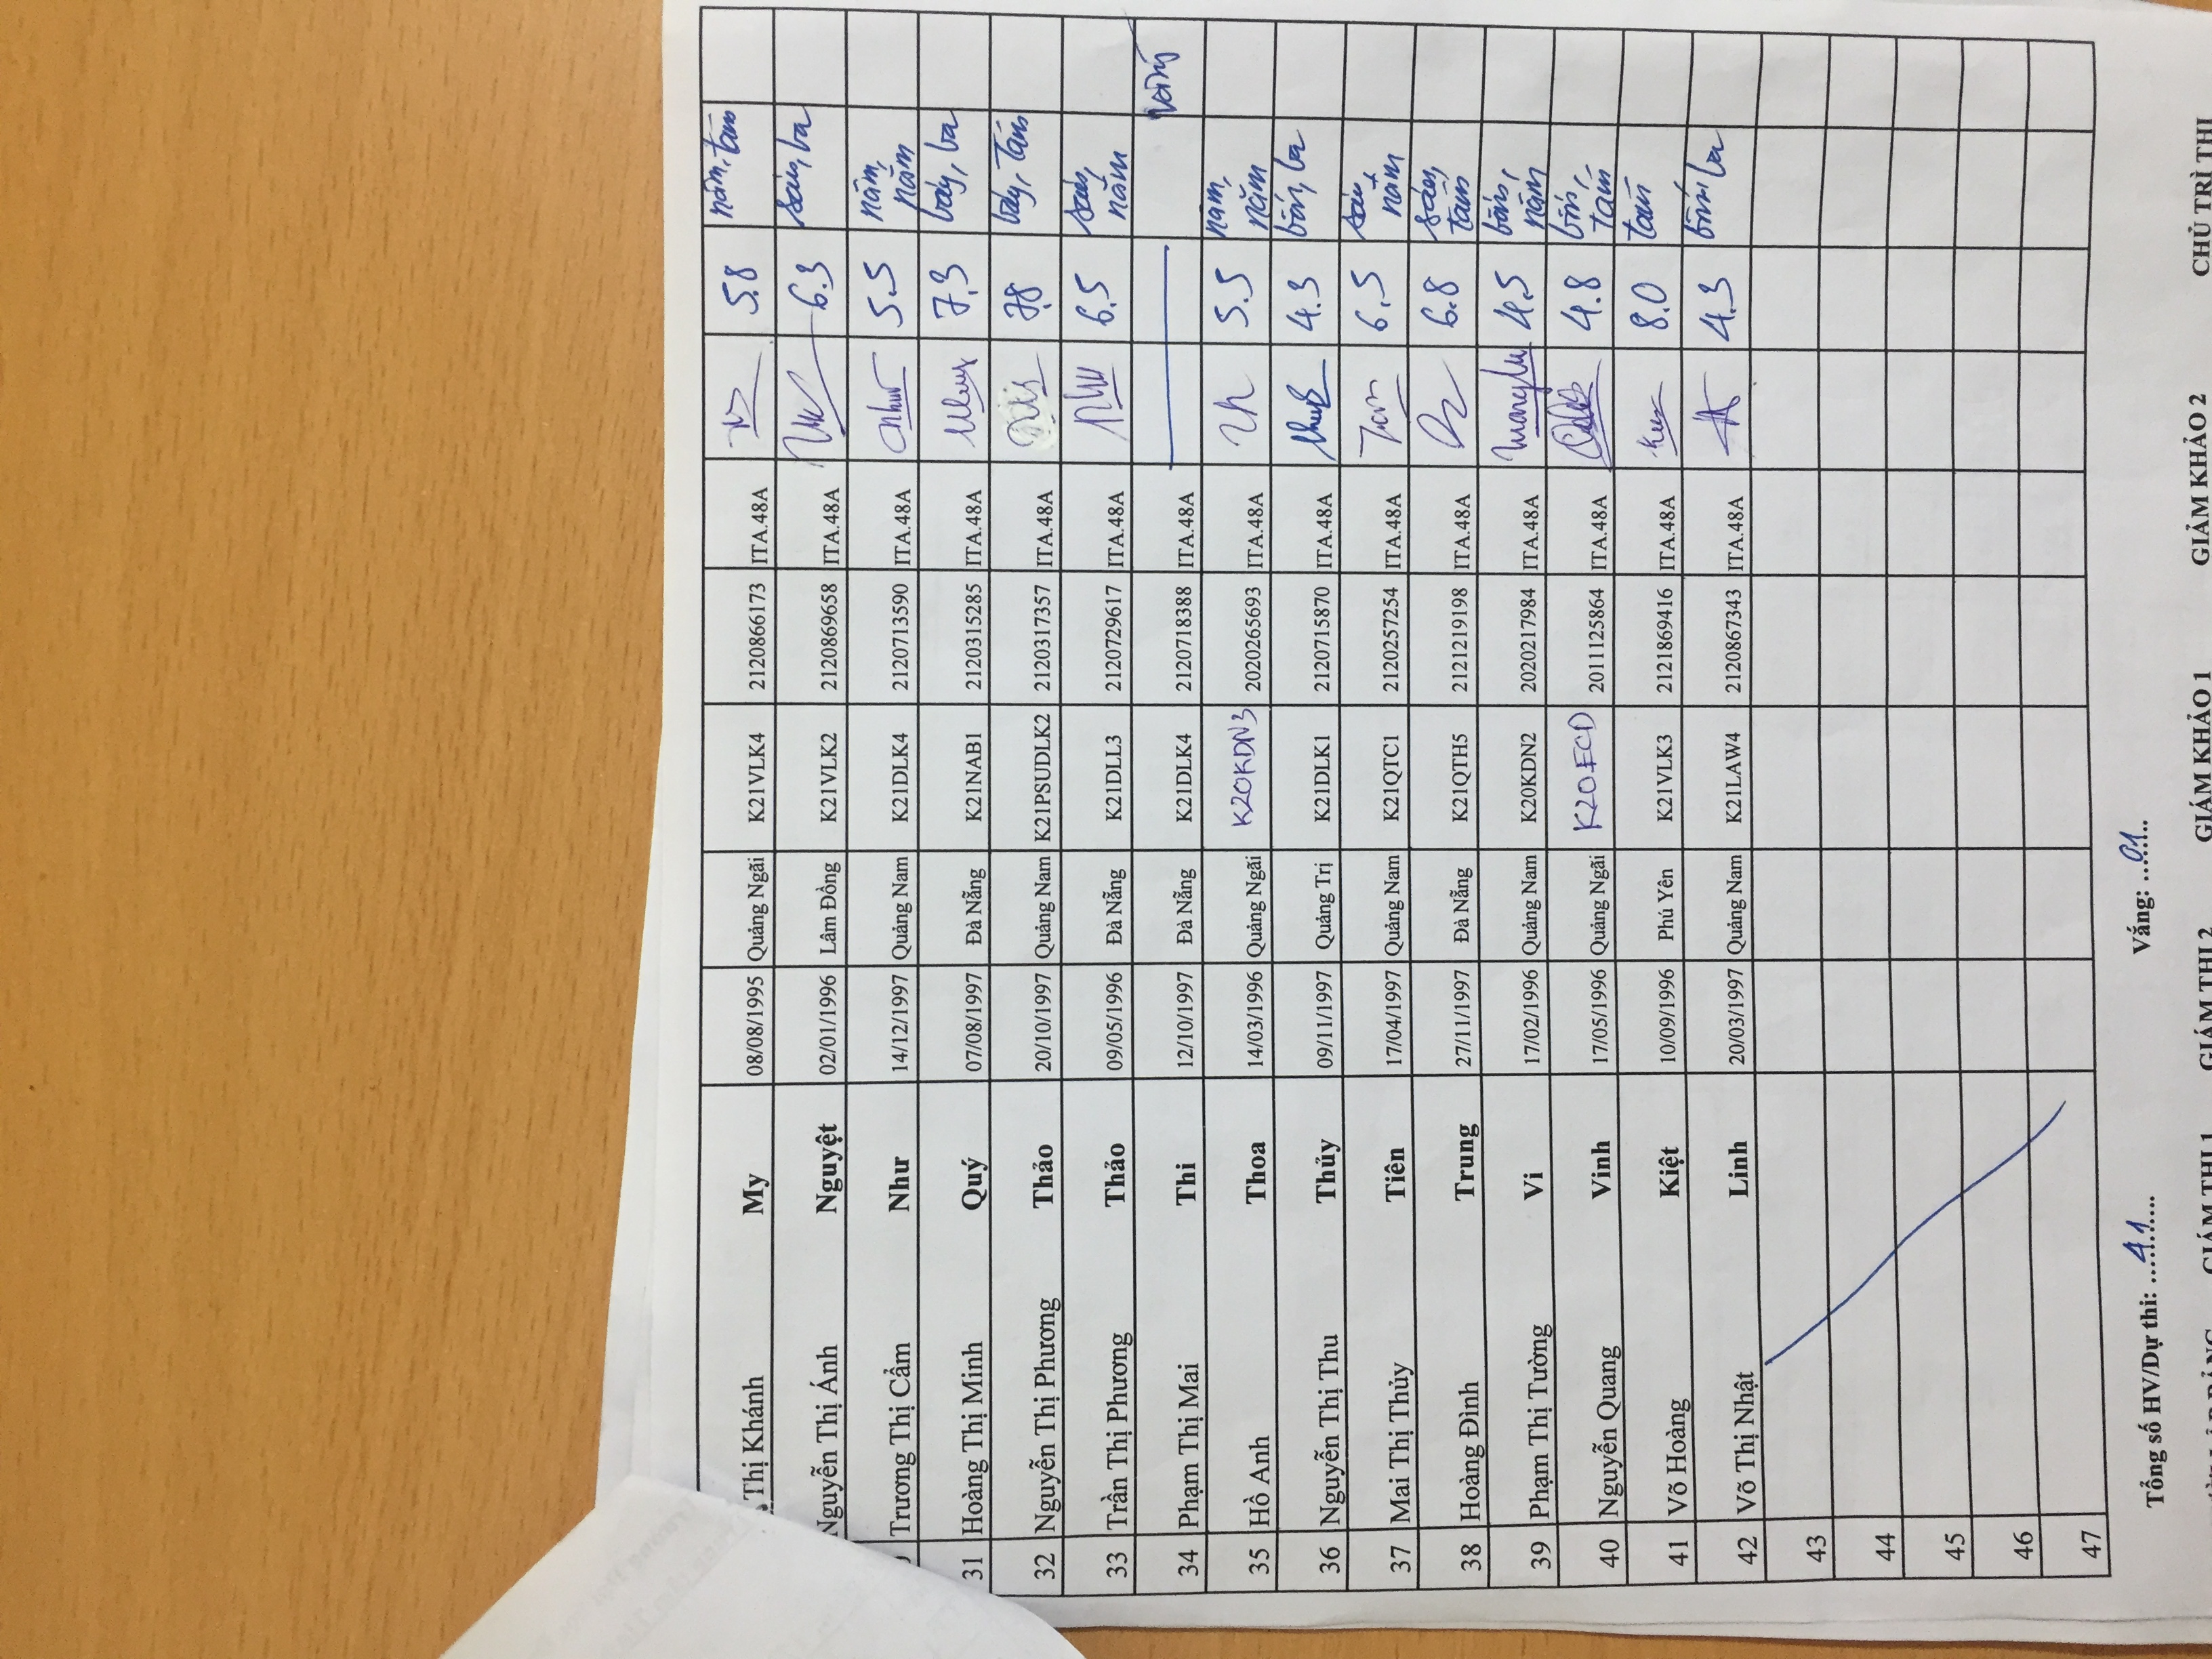 Thị Khánh My 08/08/1995 Quảng Ngãi K21VLK4 2120866173 ITA.48A 5.8 năm, tám
Nguyễn Thị Ánh Nguyệt 02/01/1996 Lâm Đồng K21VLK2 2120869658 ITA.48A 6.3 sáu, ba
Trương Thị Cẩm Như 14/12/1997 Quảng Nam K21DLK4 2120713590 ITA.48A Như 5.5 năm, năm
31 Hoàng Thị Minh Quý 07/08/1997 Đà Nẵng K21NAB1 2120315285 ITA.48A 7.3 bảy, ba
32 Nguyễn Thị Phương Thảo 20/10/1997 Quảng Nam K21PSUDLK2 2120317357 ITA.48A 7.8 bảy, tám
33 Trần Thị Phương Thảo 09/05/1996 Đà Nẵng K21DLL3 2120729617 ITA.48A 6.5 sáu, năm
34 Phạm Thị Mai Thi 12/10/1997 Đà Nẵng K21DLK4 2120718388 ITA.48A vắng
35 Hồ Anh Thoa 14/03/1996 Quảng Ngãi K20KDN3 2020265693 ITA.48A 5.5 năm, năm
36 Nguyễn Thị Thu Thủy 09/11/1997 Quảng Trị K21DLK1 2120715870 ITA.48A 4.3 bốn, ba
37 Mai Thị Thủy Tiên 17/04/1997 Quảng Nam K21QTC1 2120257254 ITA.48A 6.5 sáu, năm
38 Hoàng Đình Trung 27/11/1997 Đà Nẵng K21QTH5 2121219198 ITA.48A 6.8 sáu, tám
39 Phạm Thị Tường Vi 17/02/1996 Quảng Nam K20KDN2 2020217984 ITA.48A 4.5 bốn, năm
40 Nguyễn Quang Vinh 17/05/1996 Quảng Ngãi K20ECD 2011125864 ITA.48A 4.8 bốn, tám
41 Võ Hoàng Kiệt 10/09/1996 Phú Yên K21VLK3 2121869416 ITA.48A 8.0 tám
42 Võ Thị Nhật Linh 20/03/1997 Quảng Nam K21LAW4 2120867343 ITA.48A 4.3 bốn, ba
43
44
45
46
47
Tổng số HV/Dự thi: ...41....... Vắng: ...01...
GIÁM THỊ 1 GIÁM THỊ 2 GIÁM KHẢO 1 GIẢM KHẢO 2 CHỦ TRÌ THI